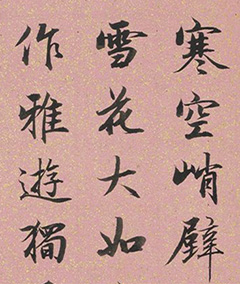 寒空峭壁
雪花大如
作雅遊獨